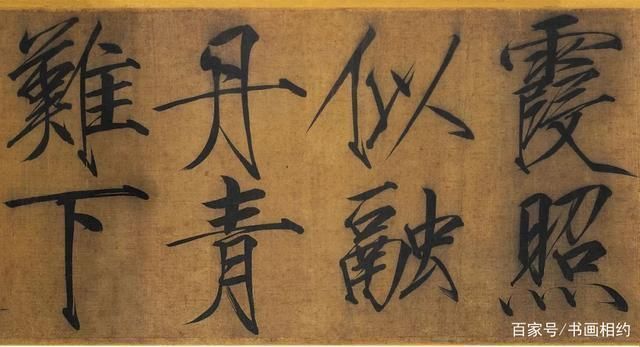 霞照
似融
丹青
難下
百家号/书画相约